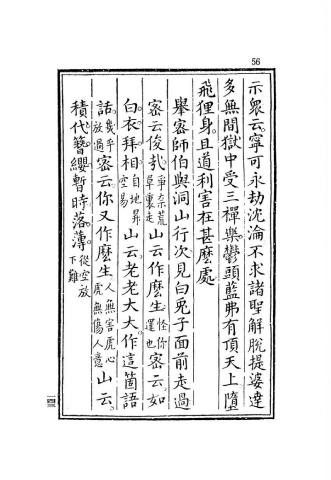 56
示眾云。寧可永劫沈淪不求諸聖解脫提婆達
多無間獄中受三禪樂鬱頭藍弗有頂天上墮
飛狸身。且道利害在甚麼處
舉密師伯與洞山行次見白兔子面前走過
密云俊哉爭奈荒草裏走山云作麼生怪你還也密云如
白衣拜相自地昇空易山云。老老大大作這箇語
話。幾乎放過密云你又作麼生人無害虎心虎無傷人意山云。
積代簪纓暫時落薄。從空放下難
一四三